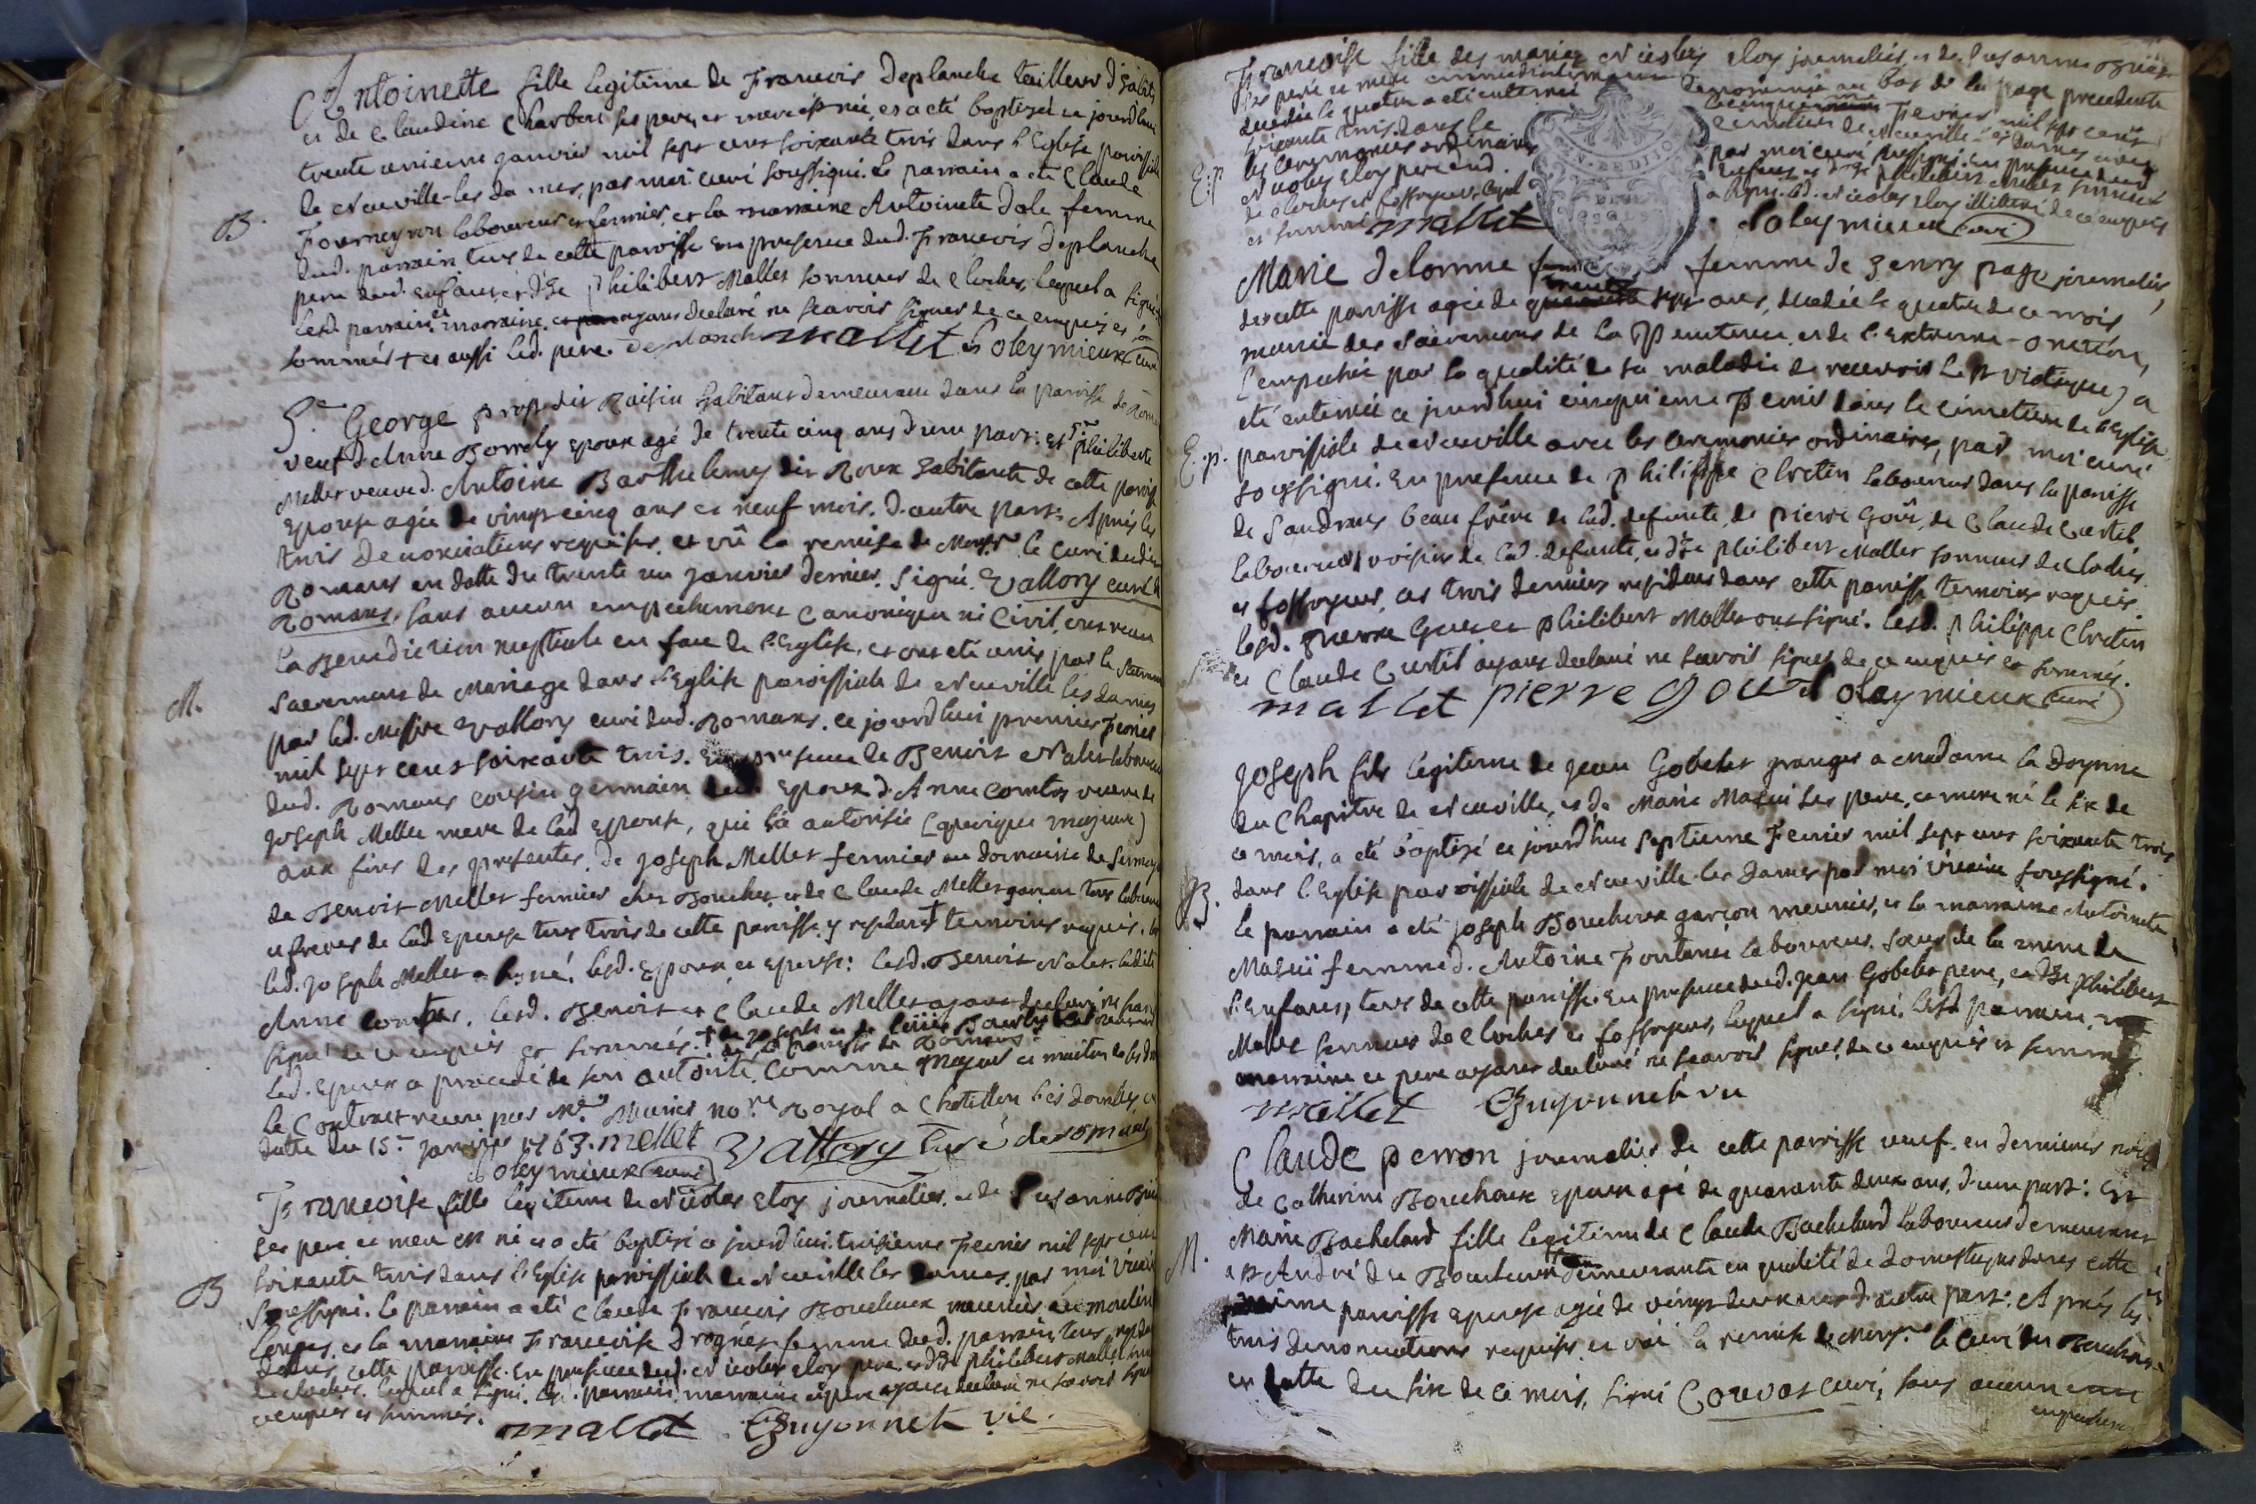 Antoinette fille legitime de Francois Deplanche tailleur d'habits
et de Claudine Charbert ses pere, et mere est née, et a été baptizée ce jourd'huy
trente unieme janvier mil sept cent soixante trois dans l'Eglise paroissiale
B. de Neuville-les-dames, par moi curé soussigné. Le parrain a eté Claude
Fourneyron laboureur et fermier, et la marraine Antoinete Dole femme
dud. parrain tous de cette paroisse en presence dud. Francois Deplanche
pere dud. enfant, et d' Philibert Mallet sonneur de cloches, lequel a signé
lesd. parrain et marraine ayans declaré ne scavoir signer de ce enquis et
sommés + et aussi led. pere. Deplanche mallet Soleymieux curé
Sr. George prost dit Raisin habitant demeurant dans la paroisse de
veuf d'Anne Borrely epoux agé de trente cinq ans d'une part: Et philiberte
Mellet veuve d. Antoine Barthelemy dit Roux habitante de cette paroisse
Epouse agée de vingt cinq ans et neuf mois. d'autre part: Aprés les
trois denonciations requises, et vû la remise de le curé dudit
Romans en datte du trente un janvier dernier, signé Vallory curé de
Romans, sans aucun empechement canonique ni civil, ont recu
la Benediction nuptiale en face de l'Eglise, et ont eté unis par le
M. sacrement de Mariage dans l'Eglise paroissiale de Neuville les dames
par led. Messire Vallory curé dud. Romans. ce jourd'hui premier Fevrier
mil sept cent soixante trois. En presence de Benoit Nalet laboureur
dud. Romans cousin germain epoux d. Anne Comtet veuve de
Joseph Mellet mere de lad epouse, qui l'a autorisée (quoique majeure)
aux fins des presentes, de Joseph Mellet fermier au domaine de
de Benoit Mellet fermier chez Bouchet, et de Claude Mellet garcon tous laboureurs
et freres de lad epouse tous trois de cette paroisse y residants + temoins requis.
led. Joseph Mellet a signé. lesd. Epoux et Epouse: lesd. Benoit Nalet. ladite
Anne Comtet. lesd. Benoit et Claude Mellet ayant declaré ne scavoir
signé de ce enquis et sommés. + de Joseph et de
de la paroisse de Romans.
led. epoux a procedé de son autorité, comme majeur et maitre de ses
le Contract recu par Me. Munier nore. Royal a Chatillon les Dombes en
datte du 15e. janvier 1763. mellet Vallory Curé de romans
Soleymieux curé
Francoise fille legitime de Nicolas Eloy journalier, et de Susanne
ses pere et mere est née et a eté baptizé ce jourd'hui troisieme Fevrier mil sept cent
soixante trois dans l'Eglise paroissiale de Neuville les dames, par moi vicaire
B soussigné. le parrain a eté Claude Francois Boucheux meunier au moulin
et la marraine Francoise Drognet femme dud. parrain tous
dans cette paroisse. En presence dud. Nicolas Eloy pere, et d' philibert Mallet
de cloches. lequel a signé, lesd. parrain, marraine et pere ayant declaré ne scavoir signer
ce enquis et sommés.
mallet Guyonnet vic.
Francoise fille des mariez Nicolas Eloy journalier, et de Susanne
ses pere et mere denommée au bas de la page precedente
decedée le quatre a eté enterrée Fevrier mil sept cent
soixante trois. dans le cimetiere de Neuville les dames avec
E.p. les ceremonies ordinaires par moi curé soussigné. en presence dud
Nicolas Eloy pere et d. philibert Mallet sonneur
de cloches et fossoyeur, lequel a signé. led. Nicolas Eloy illitteré de ce enquis
et sommé mallet Soleymieux curé
Marie Delorme femme de henry page journalier,
de cette paroisse agée de trente sept ans, decedée le quatre de ce mois
munie des sacremens de la Penitence, et de l'Extreme-onction,
(empechée par la qualité de sa maladie de recevoir le st viatique) a
eté enterrée ce jourd'hui cinquieme Fevrier dans le cimetiere de l'Eglise
E.p. paroissiale de Neuville avec les ceremonies ordinaires, par moi curé
soussigné. En presence de Philippe Chretin laboureur dans la paroisse
de Sandrans beau frère de lad. defunte, de pierre Goût, de Claude Curtil
laboureurs voisins de lad. defunte, et d' philibert Mallet sonneur de cloches
et fossoyeur, ces trois derniers residans dans cette paroisse temoins requis
lesd. pierre Gout et philibert Mallet ont signé. lesd. philippe Chretin
et Claude Curtil ayans declaré ne scavoir signer de ce enquis et sommés.
mallet pierre gout Soleymieux curé
Joseph fils legitime de Jean Gobelet granger a Madame la Doyenne
du Chapitre de Neuville, et de Marie Mazui ses pere, et mere né le six de
ce mois, a eté baptizé ce jourd'hui septieme Fevrier mil sept cent soixante trois
B. dans l'Eglise paroissiale de Neuville-les dames par moi vicaire soussigné.
le parrain a eté Joseph Boucheux garçon meunier, et la marraine Antoinete
Mazui femme d. Antoine Fontanel laboureur. soeur de la mere de
l'Enfant, tous de cette paroisse. En presence dud. Jean Gobelet pere, et d' philibert
Mallet sonneur de cloches et fossoyeur, lequel a signé, lesd parrain,
marraine et pere ayans declaré ne scavoir signer, de ce enquis et sommés
mallet Guyonnet vic
Claude perron journalier de cette paroisse veuf en dernieres noces
de Catherine Bouchoux epoux agé de quarante deux ans, d'une part: Et
Marie Bachelard fille legitime de Claude Bachelard laboureur demeurant
M. a st André du Bouchoux demeurante en qualité de domestique dans cette
même paroisse epouse agée de vingt deux ans d'autre part: Aprés les
trois denonciations requises, et vû la remise de le curé du Bouchoux
en datte du six de ce mois, signé Couvat curé, sans aucun
empechem